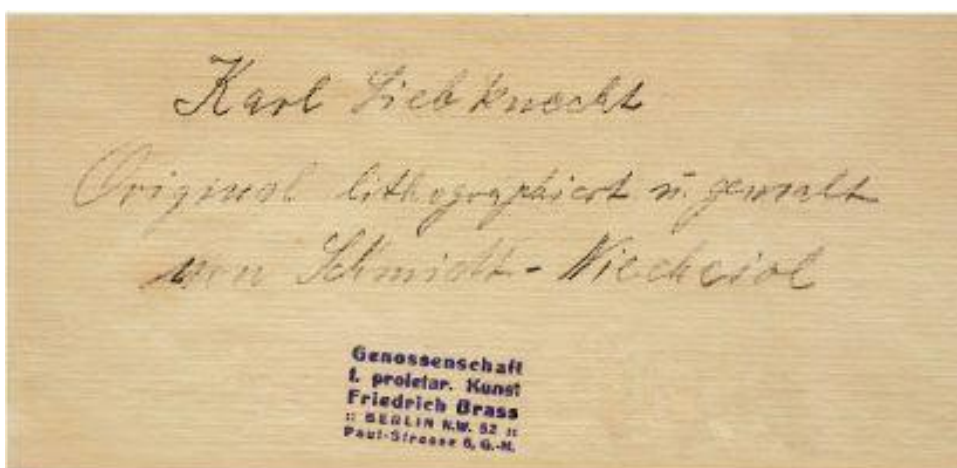 Karl Liebknecht
Original lithographiert u. gemalt
von Schmidt-Niechciol
Genossenschaft
f. proletar. Kunst
Friedrich Brass
:: BERLIN N.W. 52 ::
Paul-Strasse 6, G.-H.